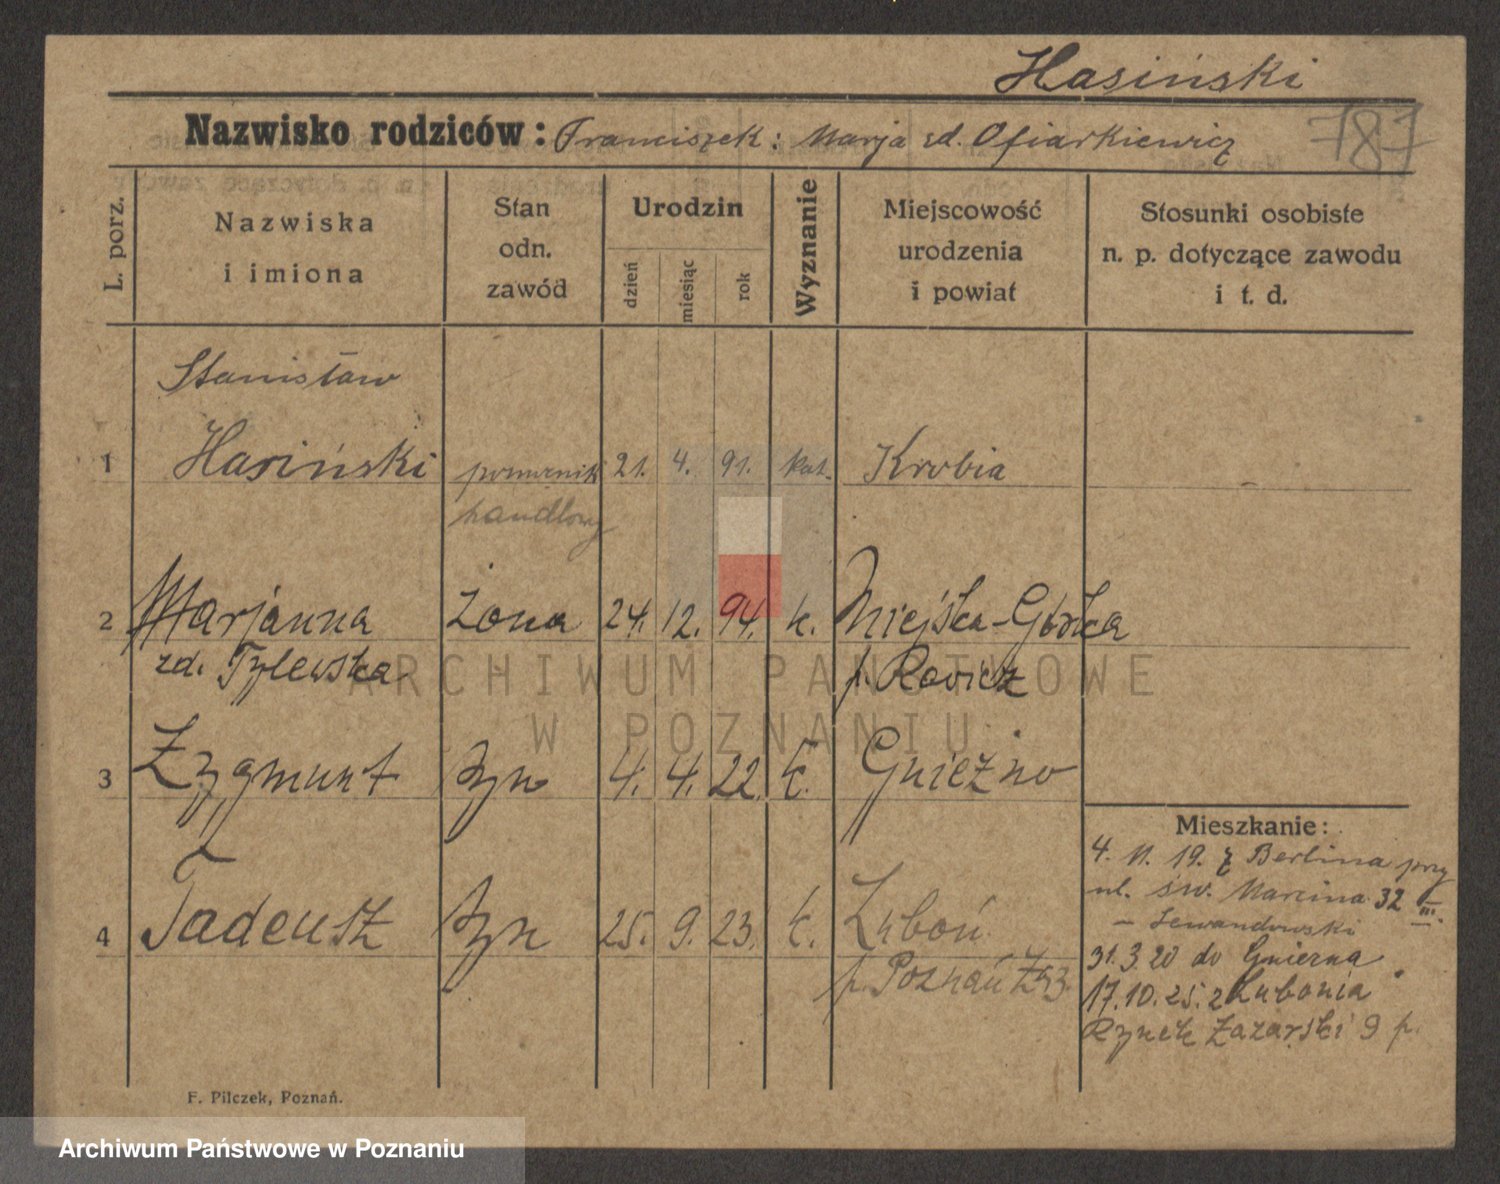 Hasiński
Nazwisko rodziców: Franciszek: Marja zd. Ofiarkiewicz
787
L. porz.
Nazwiska
i imiona
Stan
odn.
zawód
Urodzin
dzień
miesiąc
rok
Wyznanie
Miejscowość
urodzenia
i powiat
Stosunki osobiste
n. p. dotyczące zawodu
i t. d.
Stanisław
1 Hasiński pomocnik 21. 4. 91. kat. Krobia
handlowy
2 Marjanna żona 24. 12. 94. k. Miejska-Górka
zd. Tylewska p. Rawicz
3 Zygmunt syn 4. 4. 22. k. Gniezno
4 Tadeusz syn 25. 9. 23. k. Luboń
p. Poznań Zach.
Mieszkanie:
4. 11. 19. z Berlina przy
ul. św. Marcina 32 III.
– Lewandowski
31.3.20 do Gniezna
17.10.25. z Lubonia
Rynek Łazarski 9 p.
F. Pilczek, Poznań.
ARCHIWUM PAŃSTWOWE
W POZNANIU
Archiwum Państwowe w Poznaniu